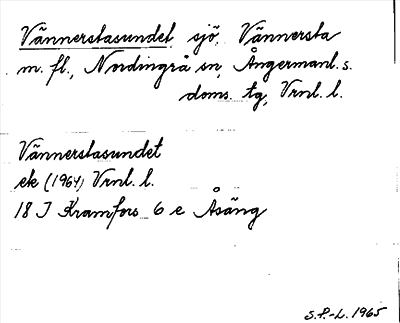 Vännerstasundet, sjö, Vännersta
m. fl., Nordingrå sn, Ångermanl. s.
doms. tg, Vrnl. l.
Vännerstasundet
ek (1964) Vrnl. l.
18 J Kramfors 6 e Åsäng
S.P.-L. 1965